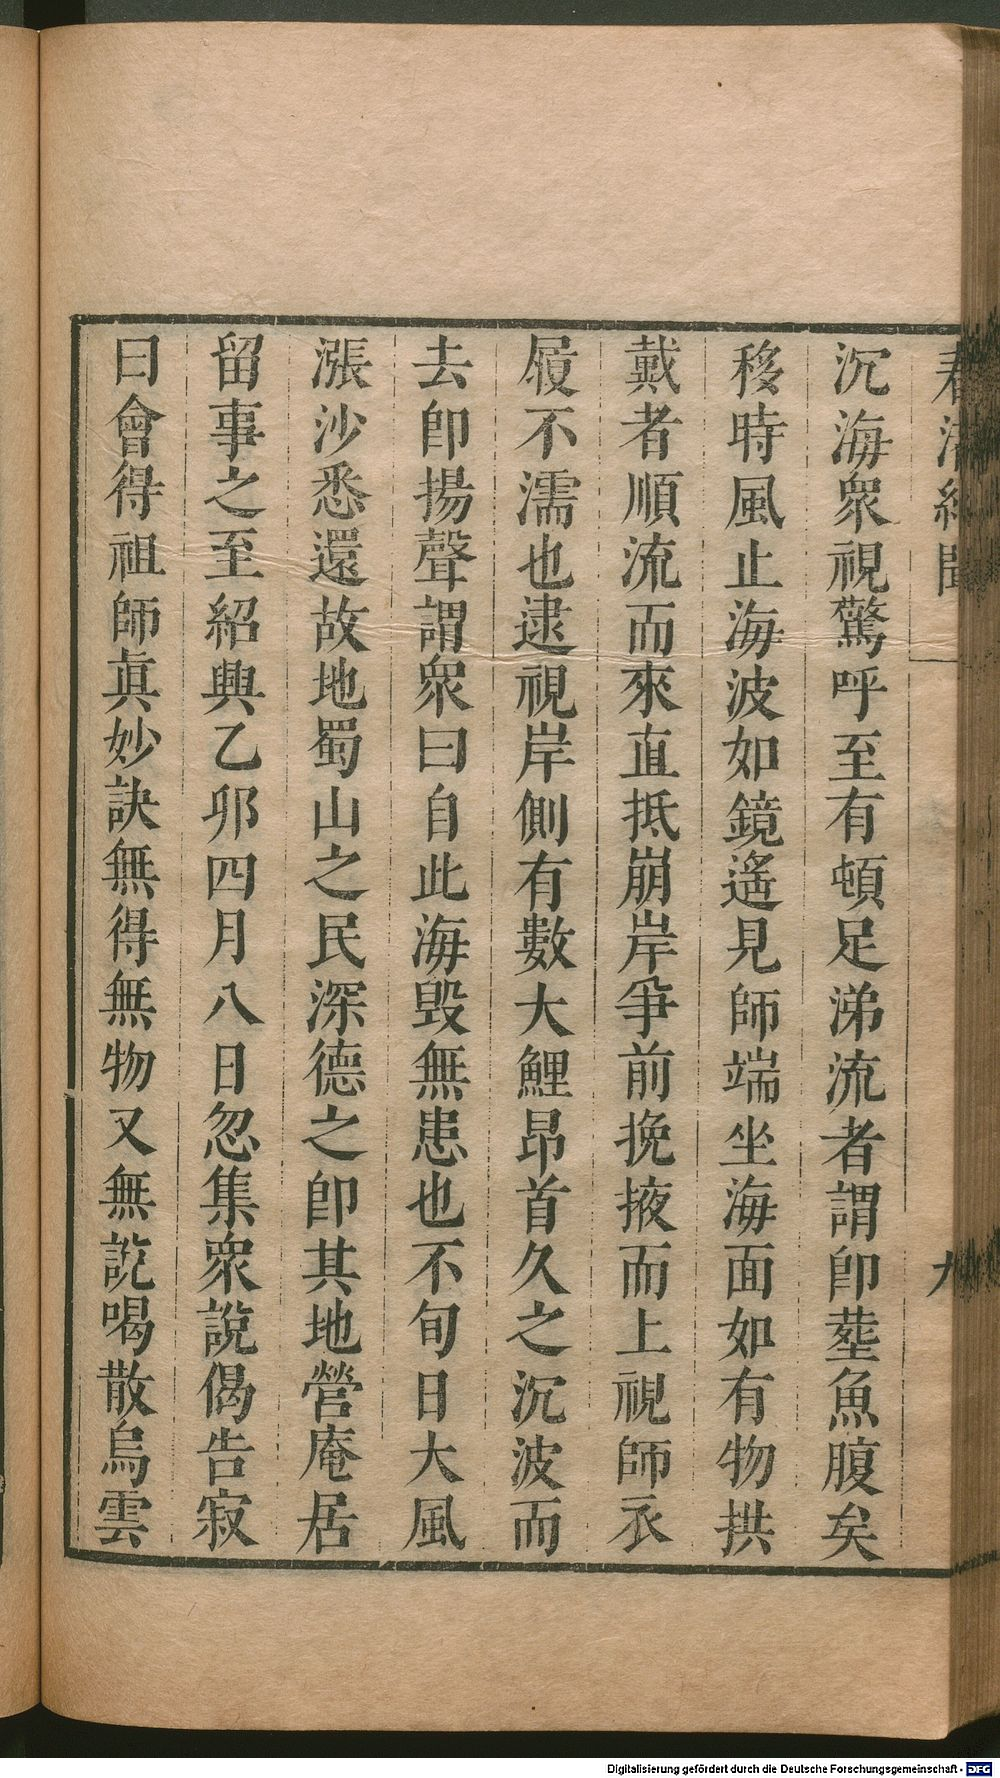 沉海衆視驚呼至有頓足涕流者謂卽塟魚腹矣
移時風止海波如鏡遙見師端坐海面如有物拱
戴者順流而來直抵崩岸爭前挽掖而上視師衣
履不濡也逮視岸側有數大鯉昂首久之沉波而
去卽揚聲謂衆曰自此海毀無患也不旬日大風
漲沙悉還故地蜀山之民深德之卽其地營庵居
留事之至紹興乙卯四月八日忽集衆說偈告寂
曰會得祖師眞妙訣無得無物又無說喝散烏雲
Digitalisierung gefördert durch die Deutsche Forschungsgemeinschaft - DFG